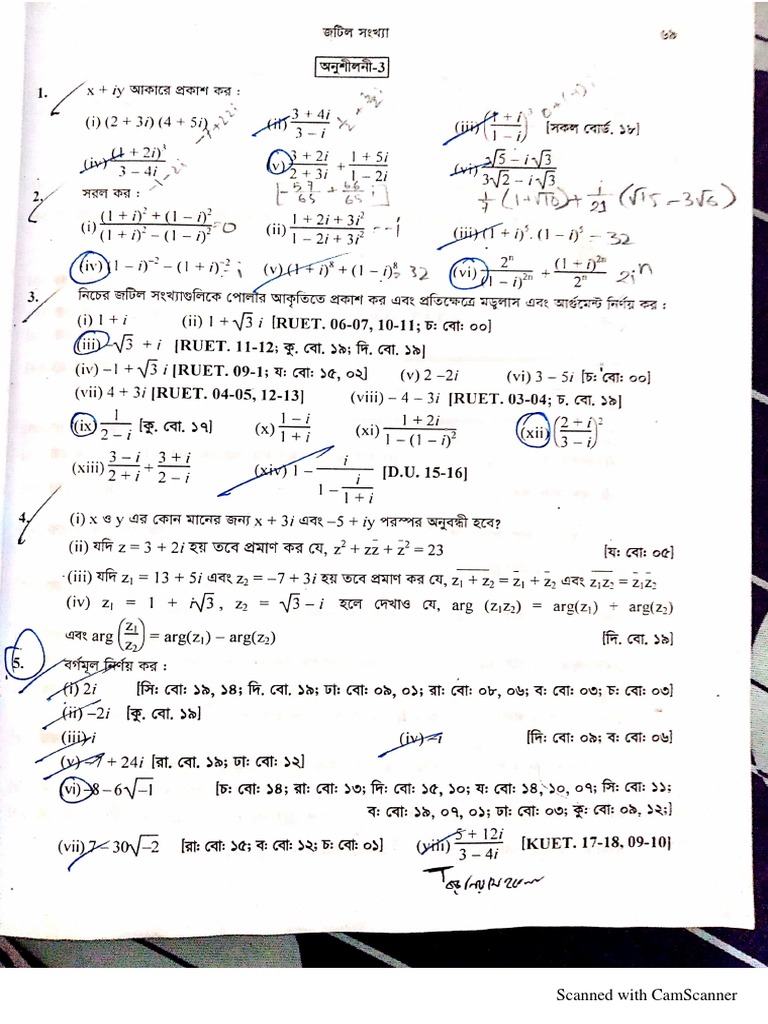 জটিল সংখ্যা ৬৯
অনুশীলনী-3
1. x + iy আকারে প্রকাশ কর :
(i) (2 + 3i) (4 + 5i) -7+22i (ii) \frac{3 + 4i}{3 - i} (iii) \left(\frac{1 + i}{1 - i}\right)^3 [সকল বোর্ড. ১৮] 0+(-1)i
(iv) \frac{(1 + 2i)^3}{3 - 4i} -1-2i (v) \frac{3 + 2i}{2 + 3i} + \frac{1 + 5i}{1 - 2i} [-\frac{57}{65} + \frac{66}{65}i] (vi) \frac{2\sqrt{5} - i\sqrt{3}}{3\sqrt{2} - i\sqrt{3}}
2. সরল কর : \frac{1}{7}(1+\sqrt{10}) + \frac{1}{21}(\sqrt{15} - 3\sqrt{6})
(i) \frac{(1 + i)^2 + (1 - i)^2}{(1 + i)^2 - (1 - i)^2} = 0 (ii) \frac{1 + 2i + 3i^2}{1 - 2i + 3i^2} = -i (iii) (1 + i)^5 . (1 - i)^5 - 32
(iv) (1 - i)^{-2} - (1 + i)^{-2} = i (v) (1 + i)^8 + (1 - i)^8 = 32 (vi) \frac{2^n}{(1 - i)^{2n}} + \frac{(1 + i)^{2n}}{2^n} 2i^n
3. নিচের জটিল সংখ্যাগুলিকে পোলার আকৃতিতে প্রকাশ কর এবং প্রতিক্ষেত্রে মডুলাস এবং আর্গুমেন্ট নির্ণয় কর :
(i) 1 + i (ii) 1 + \sqrt{3} i [RUET. 06-07, 10-11; চ: বো: ০০]
(iii) -\sqrt{3} + i [RUET. 11-12; কু. বো. ১৯; দি. বো. ১৯]
(iv) –1 + \sqrt{3} i [RUET. 09-1; য: বো: ১৫, ০২] (v) 2 –2i (vi) 3 – 5i [চ: বো: ০০]
(vii) 4 + 3i [RUET. 04-05, 12-13] (viii) – 4 – 3i [RUET. 03-04; চ. বো. ১৯]
(ix) \frac{1}{2 - i} [কু. বো. ১৭] (x) \frac{1 - i}{1 + i} (xi) \frac{1 + 2i}{1 - (1 - i)^2} (xii) \left(\frac{2 + i}{3 - i}\right)^2
(xiii) \frac{3 - i}{2 + i} + \frac{3 + i}{2 - i} (xiv) 1 - \frac{i}{1 - \frac{i}{1 + i}} [D.U. 15-16]
4. (i) x ও y এর কোন মানের জন্য x + 3i এবং –5 + iy পরস্পর অনুবন্ধী হবে?
(ii) যদি z = 3 + 2i হয় তবে প্রমাণ কর যে, z^2 + z\bar{z} + \bar{z}^2 = 23 [য: বো: ০৫]
(iii) যদি z₁ = 13 + 5i এবং z₂ = –7 + 3i হয় তবে প্রমাণ কর যে, \overline{z_1 + z_2} = \bar{z}_1 + \bar{z}_2 এবং \overline{z_1z_2} = \bar{z}_1\bar{z}_2
(iv) z₁ = 1 + i\sqrt{3}, z₂ = \sqrt{3} – i হলে দেখাও যে, arg (z₁z₂) = arg(z₁) + arg(z₂)
এবং arg \left(\frac{z_1}{z_2}\right) = arg(z₁) – arg(z₂) [দি. বো. ১৯]
5. বর্গমূল নির্ণয় কর :
(i) 2i [সি: বো: ১৯, ১৪; দি. বো. ১৯; ঢা: বো: ০৯, ০১; রা: বো: ০৮, ০৬; ব: বো: ০৩; চ: বো: ০৩]
(ii) –2i [কু. বো. ১৯]
(iii) i (iv) –i [দি: বো: ০৯; ব: বো: ০৬]
(v) –7 + 24i [রা. বো. ১৯; ঢা: বো: ১২]
(vi) –8 –6\sqrt{-1} [চ: বো: ১৪; রা: বো: ১৩; দি: বো: ১৫, ১০; য: বো: ১৪, ১০, ০৭; সি: বো: ১১;
ব: বো: ১৯, ০৭, ০১; ঢা: বো: ০৩; কু: বো: ০৯, ১২;]
(vii) 7 – 30\sqrt{-2} [রা: বো: ১৫; ব: বো: ১২; চ: বো: ০১] (viii) \frac{5 + 12i}{3 - 4i} [KUET. 17-18, 09-10]
Scanned with CamScanner